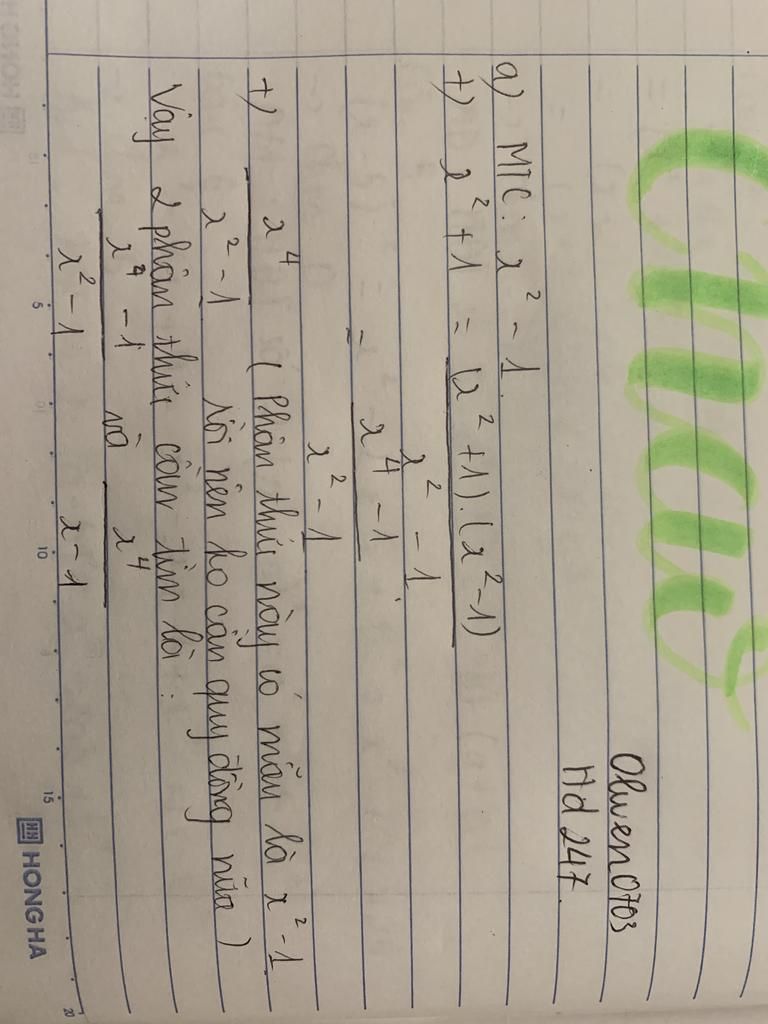 Olwen0703
Hd 247
a) MTC: x² - 1
+) x² + 1 = (x² + 1).(x² - 1)
x² - 1
= x⁴ - 1
x² - 1
+) x⁴ (Phân thức này có mẫu là x² - 1
x² - 1 rồi nên ko cần quy đồng nữa)
Vậy 2 phân thức cần tìm là:
x⁴ - 1 và x⁴
x² - 1 x - 1
5 10 15 20
HH HONG HA